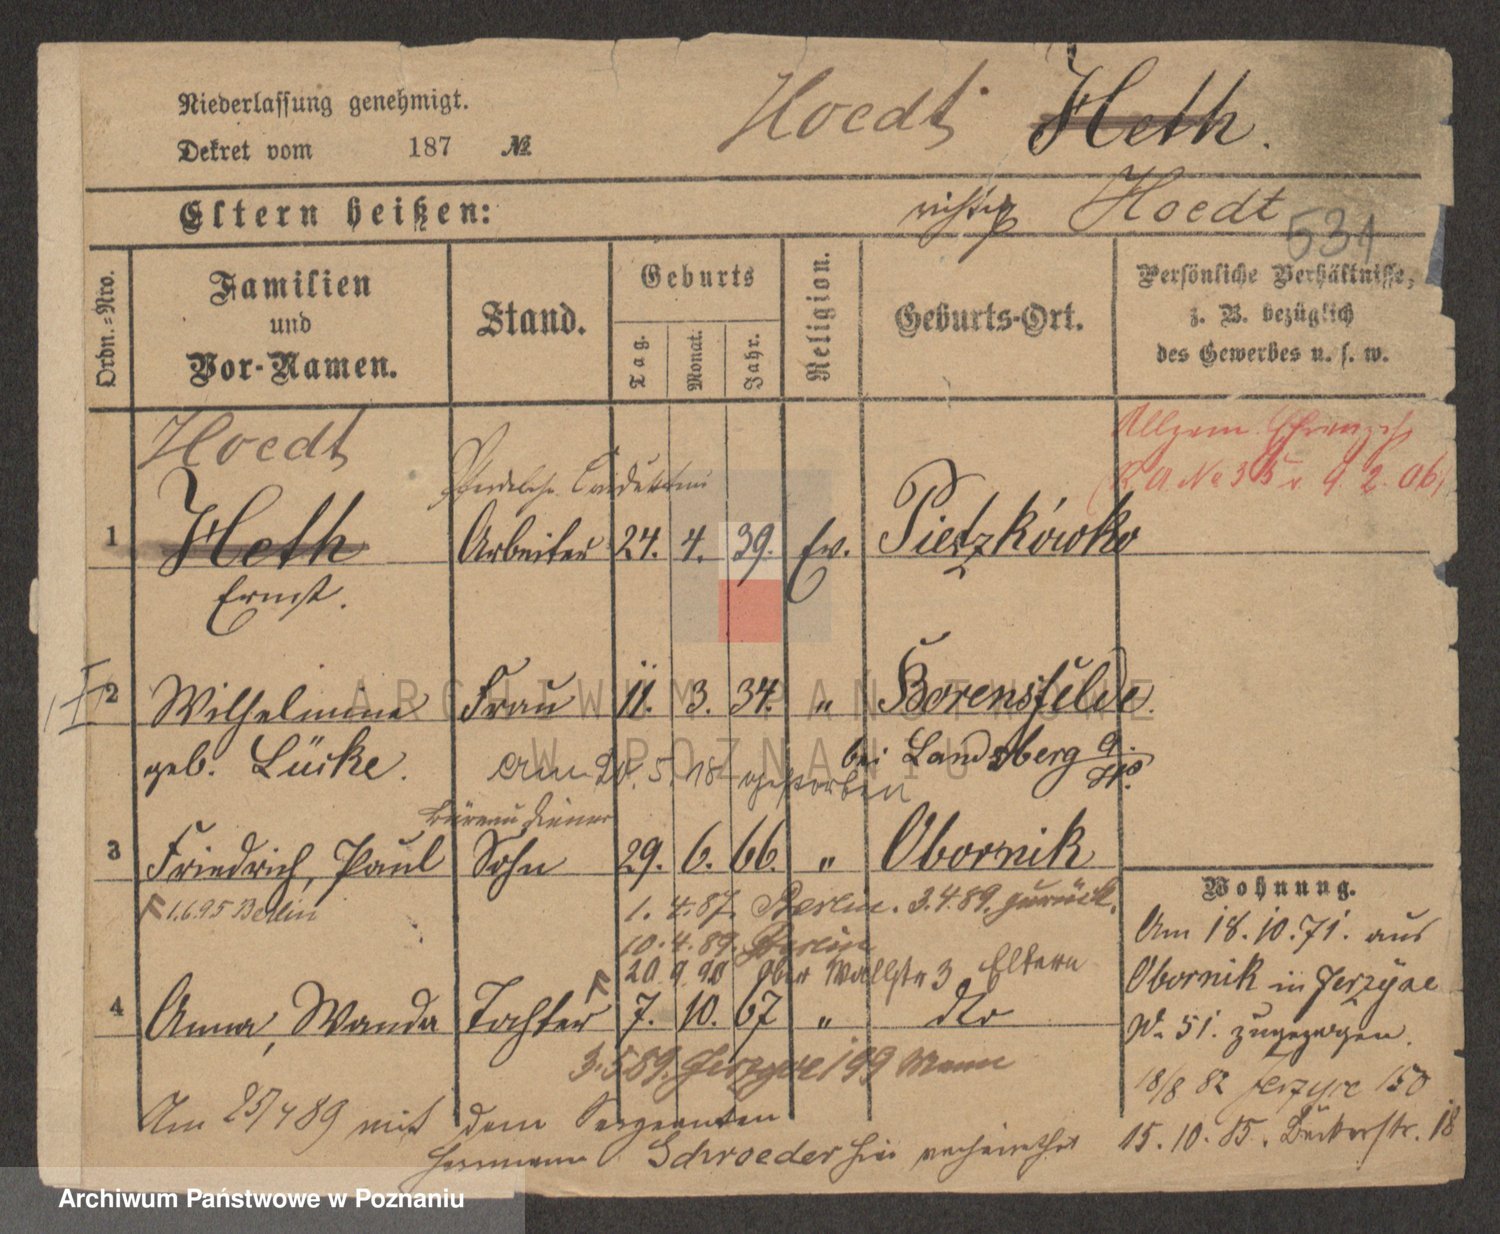 Niederlassung genehmigt.
Dekret vom 187 №
Hoedt Heth.
Eltern heißen:
richtig Hoedt
531
Ordn.-Nro.
Familien und Vor-Namen.
Stand.
Geburts
Tag.
Monat.
Jahr.
Religion.
Geburts-Ort.
Persönliche Verhältnisse, z. B. bezüglich des Gewerbes u. s. w.
Hoedt
No 35 v. 9. 2. 06.
1 Heth Arbeiter 24. 4. 39. Ev. Pietzkówko
Ernst.
2 Wilhelmine Frau 11. 3. 34. " Borensfelde.
geb. Lücke. bei Landsberg a.
am 20. 5. 18 gestorben
Büreau Diener
3 Friedrich, Paul Sohn 29. 6. 66. " Obornik
1.6.95 Berlin
1. 4. 87. Berlin. 3.4.89. zurück.
10. 4. 89. Berlin
20 9 90 Ober Wallstr 3 Eltern
4 Anna, Wanda Tochter 7. 10. 67 " dto
3.5 89. Jerzyce 199 Mann
Am 25/4 89 mit dem Sergeanten
Hermann Schroeder hier verheirathet
Wohnung.
Am 18. 10. 71. aus
Obornik in Jerzyce
No 51. zugezogen.
18/8 82 Jerzyce 150
15. 10. 85. Bäckerstr. 18
ARCHIWUM PAŃSTWOWE
W POZNANIU
Archiwum Państwowe w Poznaniu